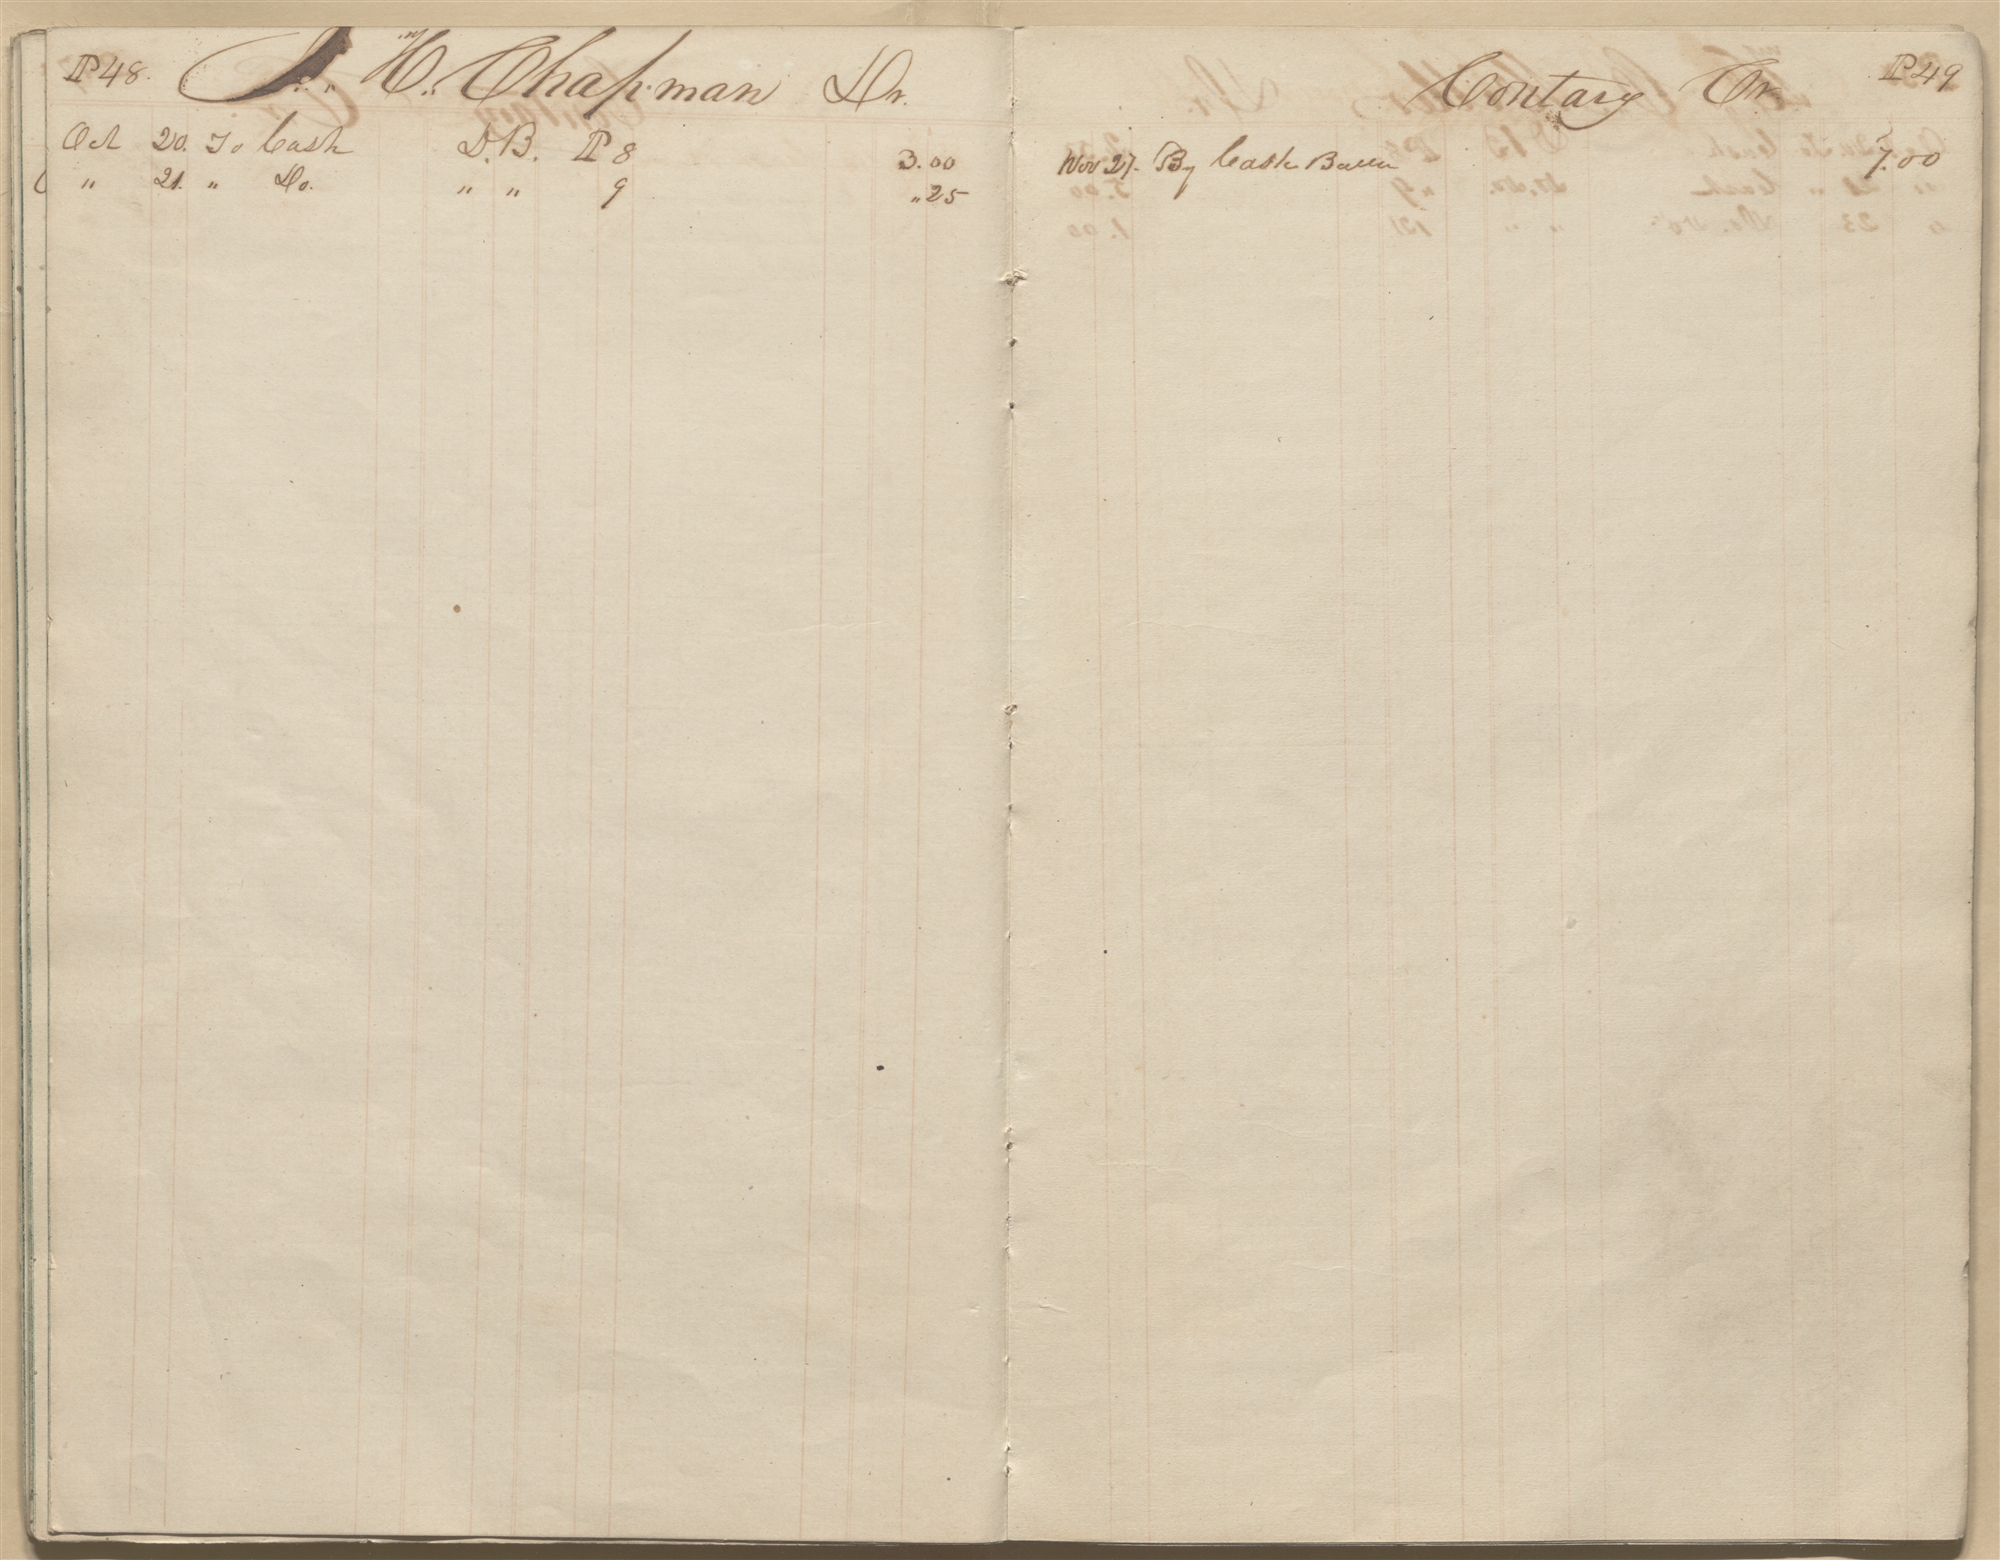 P 48. J. H. Chapman Dr.
Oct 20. To Cash D. B. P 8 3.00
" 21. " Do. " " 9 " 25
Contary Cr. P 49
Nov 27. By Cash 7.00